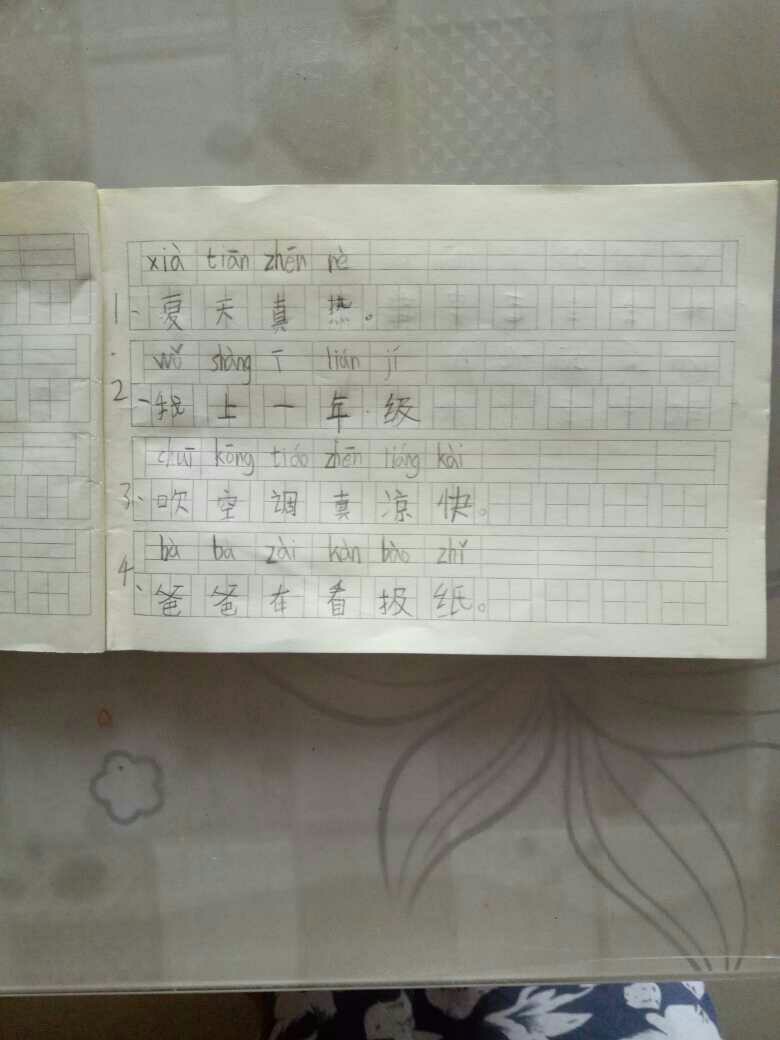 xià tiān zhēn rè
1、夏天真热。
wǒ shàng ī lián jí
2、我上一年级
chuī kōng tiáo zhēn liáng kài
3、吹空调真凉快。
bà ba zài kàn bào zhǐ
4、爸爸在看报纸。